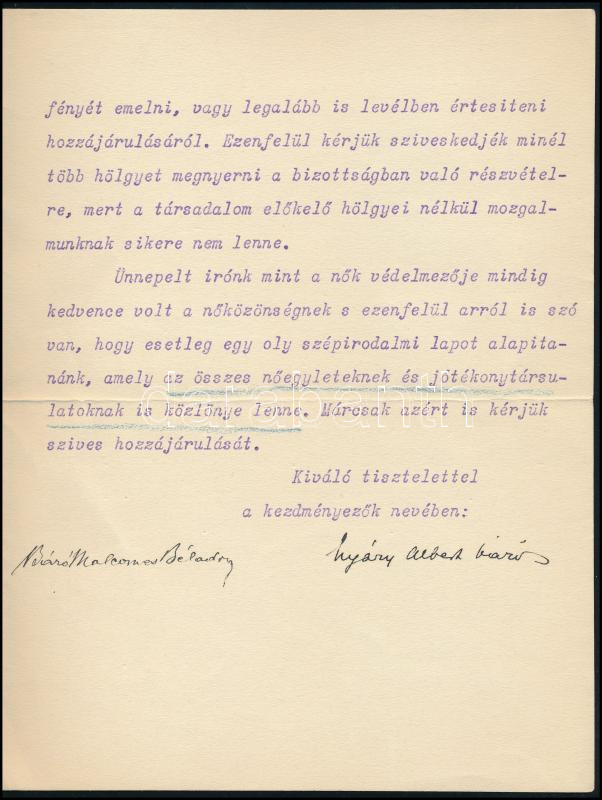 fényét emelni, vagy legalább is levélben értesiteni
hozzájárulásáról. Ezenfelül kérjük sziveskedjék minél
több hölgyet megnyerni a bizottságban való részvétel-
re, mert a társadalom előkelő hölgyei nélkül mozgal-
munknak sikere nem lenne.
Ünnepelt irónk mint a nők védelmezője mindig
kedvence volt a nőközönségnek s ezenfelül arról is szó
van, hogy esetleg egy oly szépirodalmi lapot alapita-
nánk, amely az összes nőegyleteknek és jótékonytársu-
latoknak is közlönye lenne. Márcsak azért is kérjük
szives hozzájárulását.
Kiváló tisztelettel
a kezdményezők nevében:
Báró Malcomes Béla
Nyáry Albert báró
darabanth